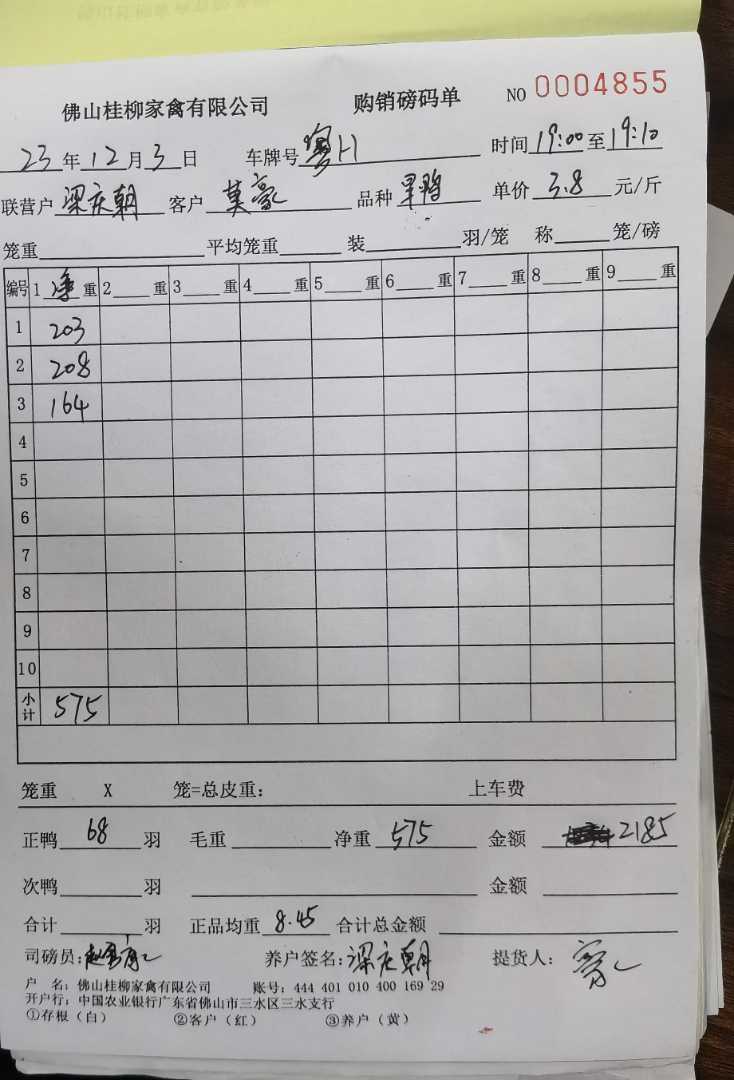 佛山桂柳家禽有限公司 购销磅码单 NO 0004855
23年12月3日 车牌号 粤H 时间 19:00 至 19:10
联营户 梁庆朝 客户 莫豪 品种 旱鸭 单价 3.8 元/斤
笼重 平均笼重 装 羽/笼 称 笼/磅
编号 1 净 重 2 重 3 重 4 重 5 重 6 重 7 重 8 重 9 重
1 203
2 208
3 164
4
5
6
7
8
9
10
小计 575
笼重 X 笼=总皮重: 上车费
正鸭 68 羽 毛重 净重 575 金额 2185
次鸭 羽 金额
合计 羽 正品均重 8.45 合计总金额
司磅员: 养户签名: 梁庆朝 提货人: 豪
户 名: 佛山桂柳家禽有限公司 账号: 444 401 010 400 169 29
开户行: 中国农业银行广东省佛山市三水区三水支行
①存根(白) ②客户(红) ③养户(黄)